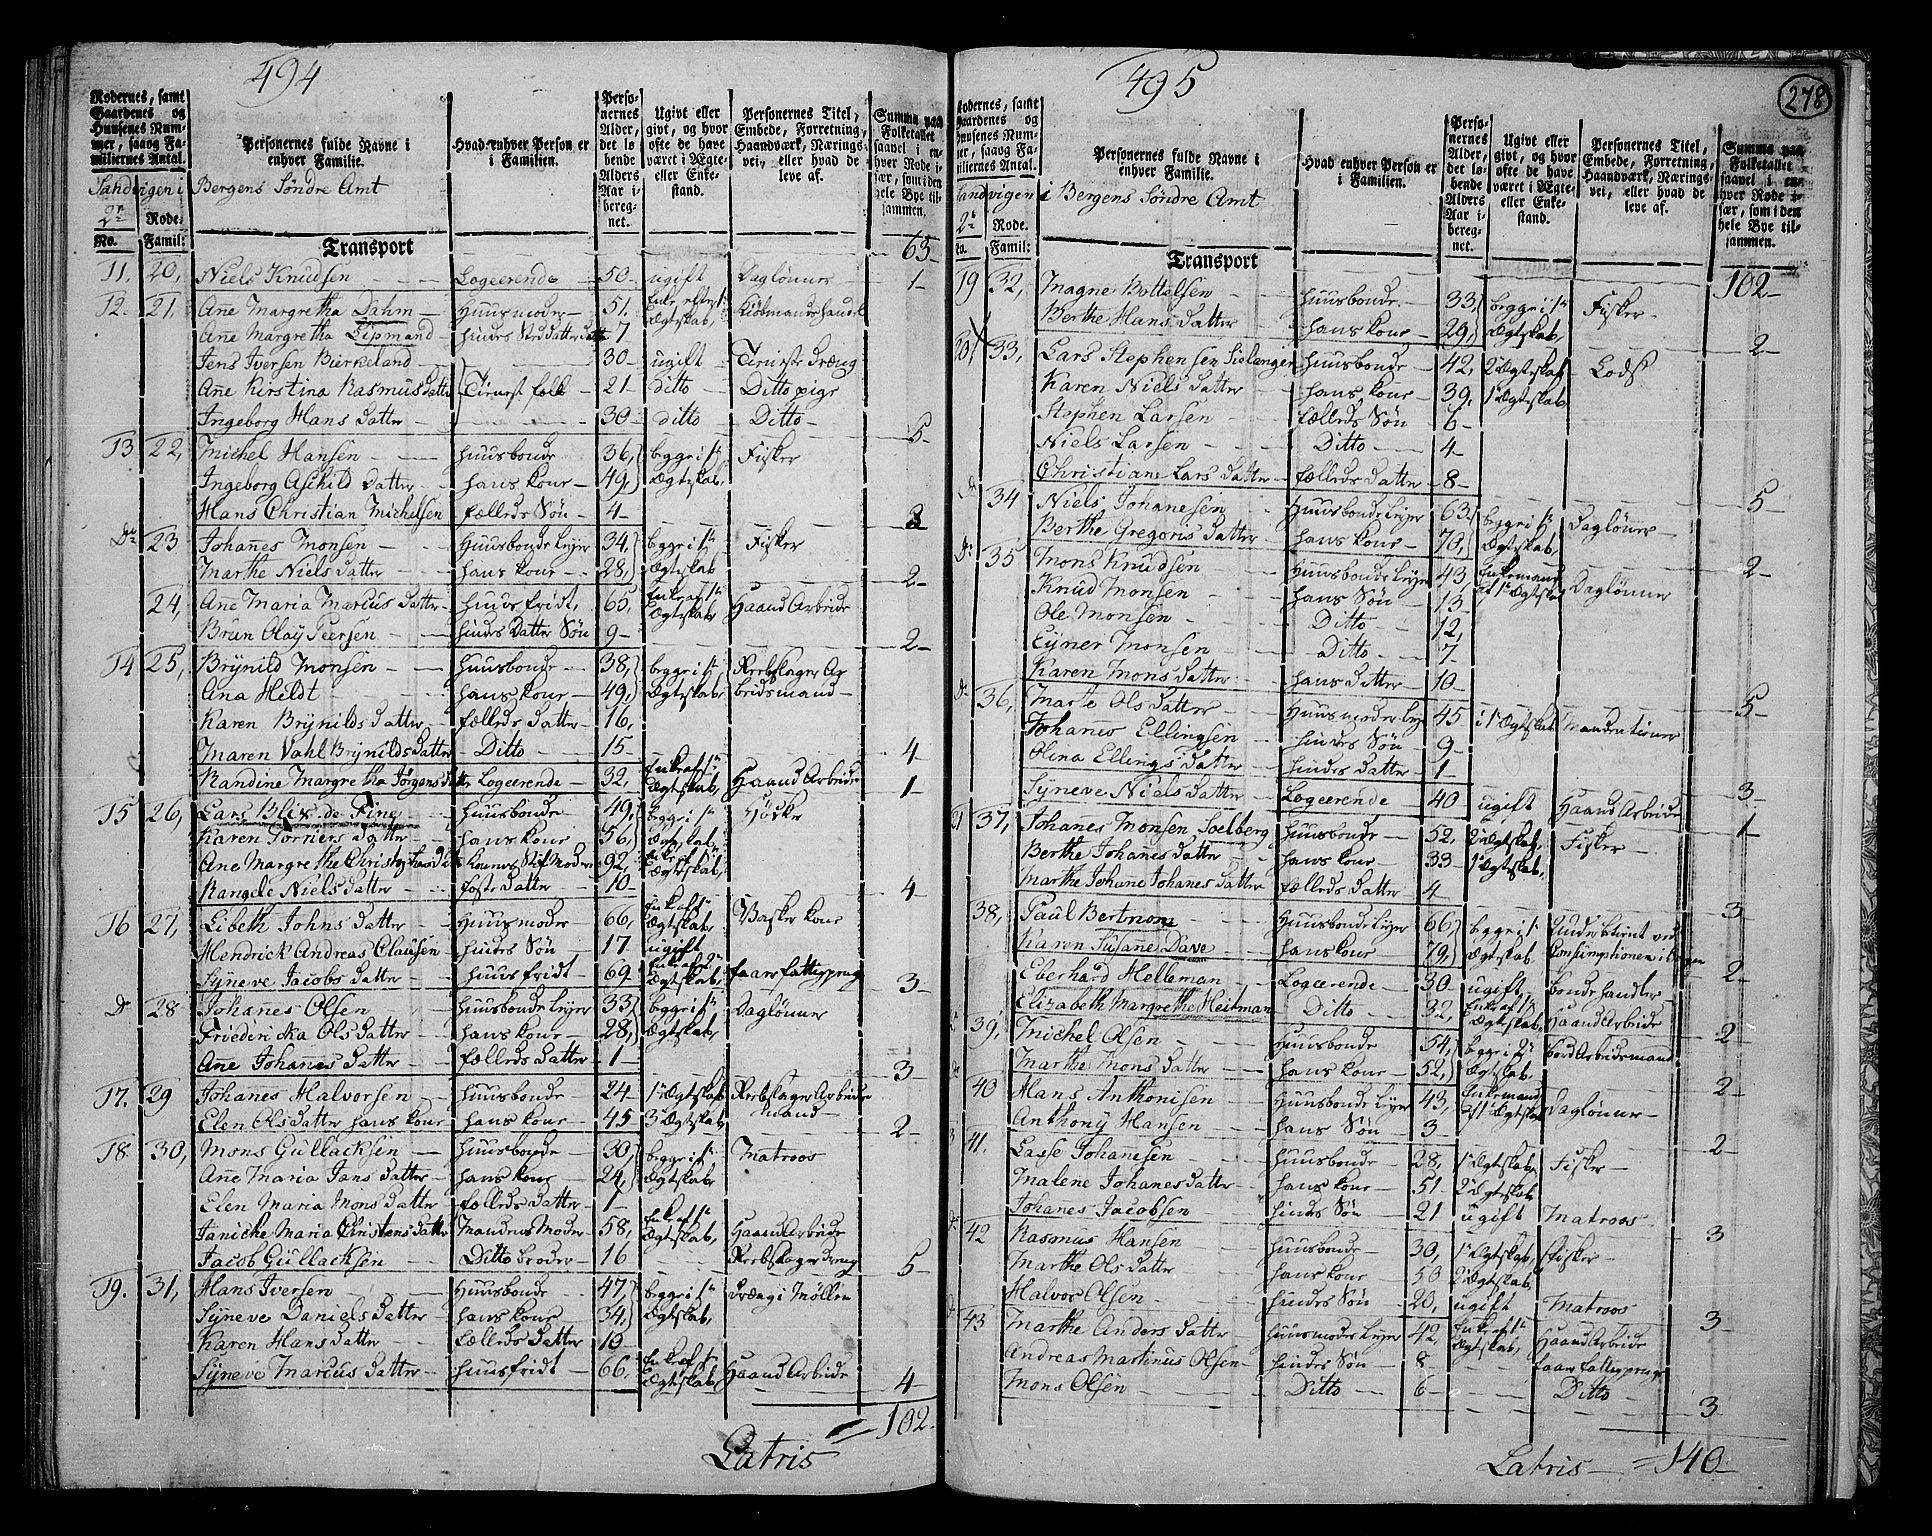 494
Rodernes, samt Gaardenes og Huusenes Nummer, saavog Familiernes Antal.
Personernes fulde Navne i enhver Familie.
Hvad enhver Person er i Familien.
Personernes Alder, det løbende Alders Aar iberegnet.
Ugivt eller givt, og hvor ofte de have været i Ægte- eller Enkestand.
Personernes Titel, Embede, Forretning, Haandværk, Næringsvei, eller hvad de leve af.
Summa paa Folketallet saavel i enhver Rode især, som i den hele Bye tilsammen.
Sandvigen i Bergens Søndre Amt
2n Rode:
No. Famil:
Transport 63
11. 20, Niels Knudsen Logeerende 50 ugift Daglønner 1
12. 21, Ane Margretha Dahm Huusmoder 51. Enke efter 1 Ægteskab, Kiøbmandshandel
Ane Margretha Lipmand hindes Stedatter datter 7
Jens Iversen Birkeland 30 ugift Tieniste Dræng
Ane Kirstina Rasmusdatter Tienest folk 21 Ditto Ditto pige
Ingeborg Hans datter 30 Ditto Ditto 5
13 22, Michel Hansen Huusbonde 36, begge i 1ste Fisker
Ingeborg Aschild datter hans kone 49, Ægteskab,
Hans Christian Michelsen fælleds Søn 4 3
Do 23 Johanes Monsen Huusbonde Leyer 34, begge i 1ste Fisker
Marthe Niels datter hans kone 28, Ægteskab 2
24, Ane Maria Marcus datter huus fridt, 65, Enke af 1te Ægteskab Haand Arbeide
Brun Olay Peersen hindes datter Søn 9 2
14 25, Brynild Monsen Huusbonde 38, begge i 1 Reebslager Ar
Ana Hildt hans kone 49, Ægteskab, beidsmand
Karen Brynilds datter fælleds datter 16,
Maren Vahl Brynildsdatter Ditto 15 4
Randine Margretha Jørgensdatter Logeerende 32, Enke af 1te Ægteskab, Haand Arbeide 1
15 26, Lars Blix de Fine Huusbonde 49, begge i 1te Høcker
Karen Torrien datter hans kone 56, Ægteskab,
Ane Margrethe kones Stif Moder 92, Enke af 1 Ægteskab,
Rangele Niels datter foster datter 10 4
16 27, Libeth Johns datter Huusmoder 66, Enke af 1te Ægteskab, Vasker kone
Hendrick Andreas Clausen hindes Søn 17 ugift
Syneve Jacobs datter huus fridt 69 Enke af 2 Ægteskab, faaer fattigpenge 3
Do 28 Johanes Olsen Huusbonde Leyer 33, begge i 1te Daglønner
Friedericka Ols datter hans kone 28, Ægteskab,
Ane Johanes datter fælleds datter 1 3
17. 29 Johanes Halvorsen Huusbonde 24 1te Ægteskab Reebslager Arbeids
Elen Olsdatter hans kone hans kone 45 3 Ægteskab mand 2
18 30, Mons Gullacksen Huusbonde 30, begge i 1te Matroos
Ane Maria Jans datter hans kone 24, Ægteskab,
Elen Maria Mons datter fælleds datter 1
Janicke Maria Christensdatter Mandens Moder 58, Enke af 1te Ægteskab, Haand Arbeide
Jacob Gullacksen Ditto broder 16 Reebslager dreng 5
19. 31, Hans Iversen Huusbonde 47, begge i 1te Dræng i Møllen
Syneve Daniels datter hans kone 34, Ægteskab,
Karen Hans datter fælleds datter 10
Syneve Marcus datter huusfridt 66, Enke af 1 Ægteskab, Haand Arbeide 4
Latris = 102
495
278
Rodernes, samt Gaardenes og Huusenes Nummer, saavog Familiernes Antal.
Personernes fulde Navne i enhver Familie.
Hvad enhver Person er i Familien.
Personernes Alder, det løbende Alders Aar iberegnet.
Ugivt eller givt, og hvor ofte de have været i Ægte- eller Enkestand.
Personernes Titel, Embede, Forretning, Haandværk, Næringsvei, eller hvad de leve af.
Summa paa Folketallet saavel i enhver Rode især, som i den hele Bye tilsammen.
Sandvigen i Bergens Søndre Amt
2n Rode.
No. Famil:
Transport 102
19 32, Magne Bottelsen Huusbonde 33, begge i 1te Fisker
Berthe Hans datter hans kone 29, Ægteskab, 2
20 33, Lars Stephensen Huusbonde 42, 2 Ægteskab Lods
Karen Niels datter hans kone 39, 1 Ægteskab,
Stephen Larsen fælleds Søn 6
Niels Larsen Ditto 4
Christiane Lars datter fælleds datter 8 5
Do 34 Niels Johanesen Huusbonde Leyer 63, begge i 1 Daglønner
Berthe Gregoris datter hans kone 70, Ægteskab, 2
Do 35 Mons Knudsen Huusbonde Leyer 43, Enkemand af 1te Ægteskab Daglønner
Knud Monsen hans Søn 13
Ole Monsen Ditto 12,
Eyner Monsen Ditto 7
Karen Mons datter hans datter 10 5
Do 36, Marte Ols datter Huusmoder Leyer 45 i 1 Ægteskab
Johanes Ellingsen hindes Søn 9
Olina Ellings datter hindes datter 1 3
Syneve Niels datter Logeerende 40 ugift Haand Arbeide 1
21 37, Johanes Monsen Soelberg Huusbonde 52, 2 Ægteskab, Fisker
Berthe Johanes datter hans kone 33 1 Ægteskab,
Marthe Johane Johanes datter fælleds datter 4 3
38, Paul Huusbonde Leyer 66, begge i 1 Under betient ved
Karen Susane Dave hans kone 79, Ægteskab Consumptionen i Bergen 2
Eberhard Helleman Logeerende 30 ugift bondehandler
Elizabeth Margrethe Heitman Ditto 32, Enke af 1 Ægteskab, Haand Arbeide 2
39, Michel Olsen Huusbonde 54, begge i 2 bord Arbeidsmand
Marthe Mons datter hans kone 52, Ægteskab, 2
40 Hans Anthonisen Huusbonde Leyer 43, Enkemand af 1 Ægteskab Daglønner
Anthony Hansen hans Søn 3 2
41. Lasse Johanesen Huusbonde 28, 1 Ægteskab, Fisker
Malene Johanesdatter hans kone 51 2 Ægteskab
Johanes Jacobsen hindes Søn 21 ugift Matroos 3
42 Rasmus Hansen Huusbonde 30, 1 Ægteskab, Fisker
Marthe Ols datter hans kone 50 2 Ægteskab,
Halvor Olsen hindes Søn 20, ugift Matroos 3
43 Marthe Anders datter Huusmoder Leyer 42, Enke af 1 Ægteskab, Haand Arbeide
Andreas Martinus Olsen hindes Søn 8 faaer fattigpenge
Mons Olsen Ditto 6 Ditto 3
Latris = 140